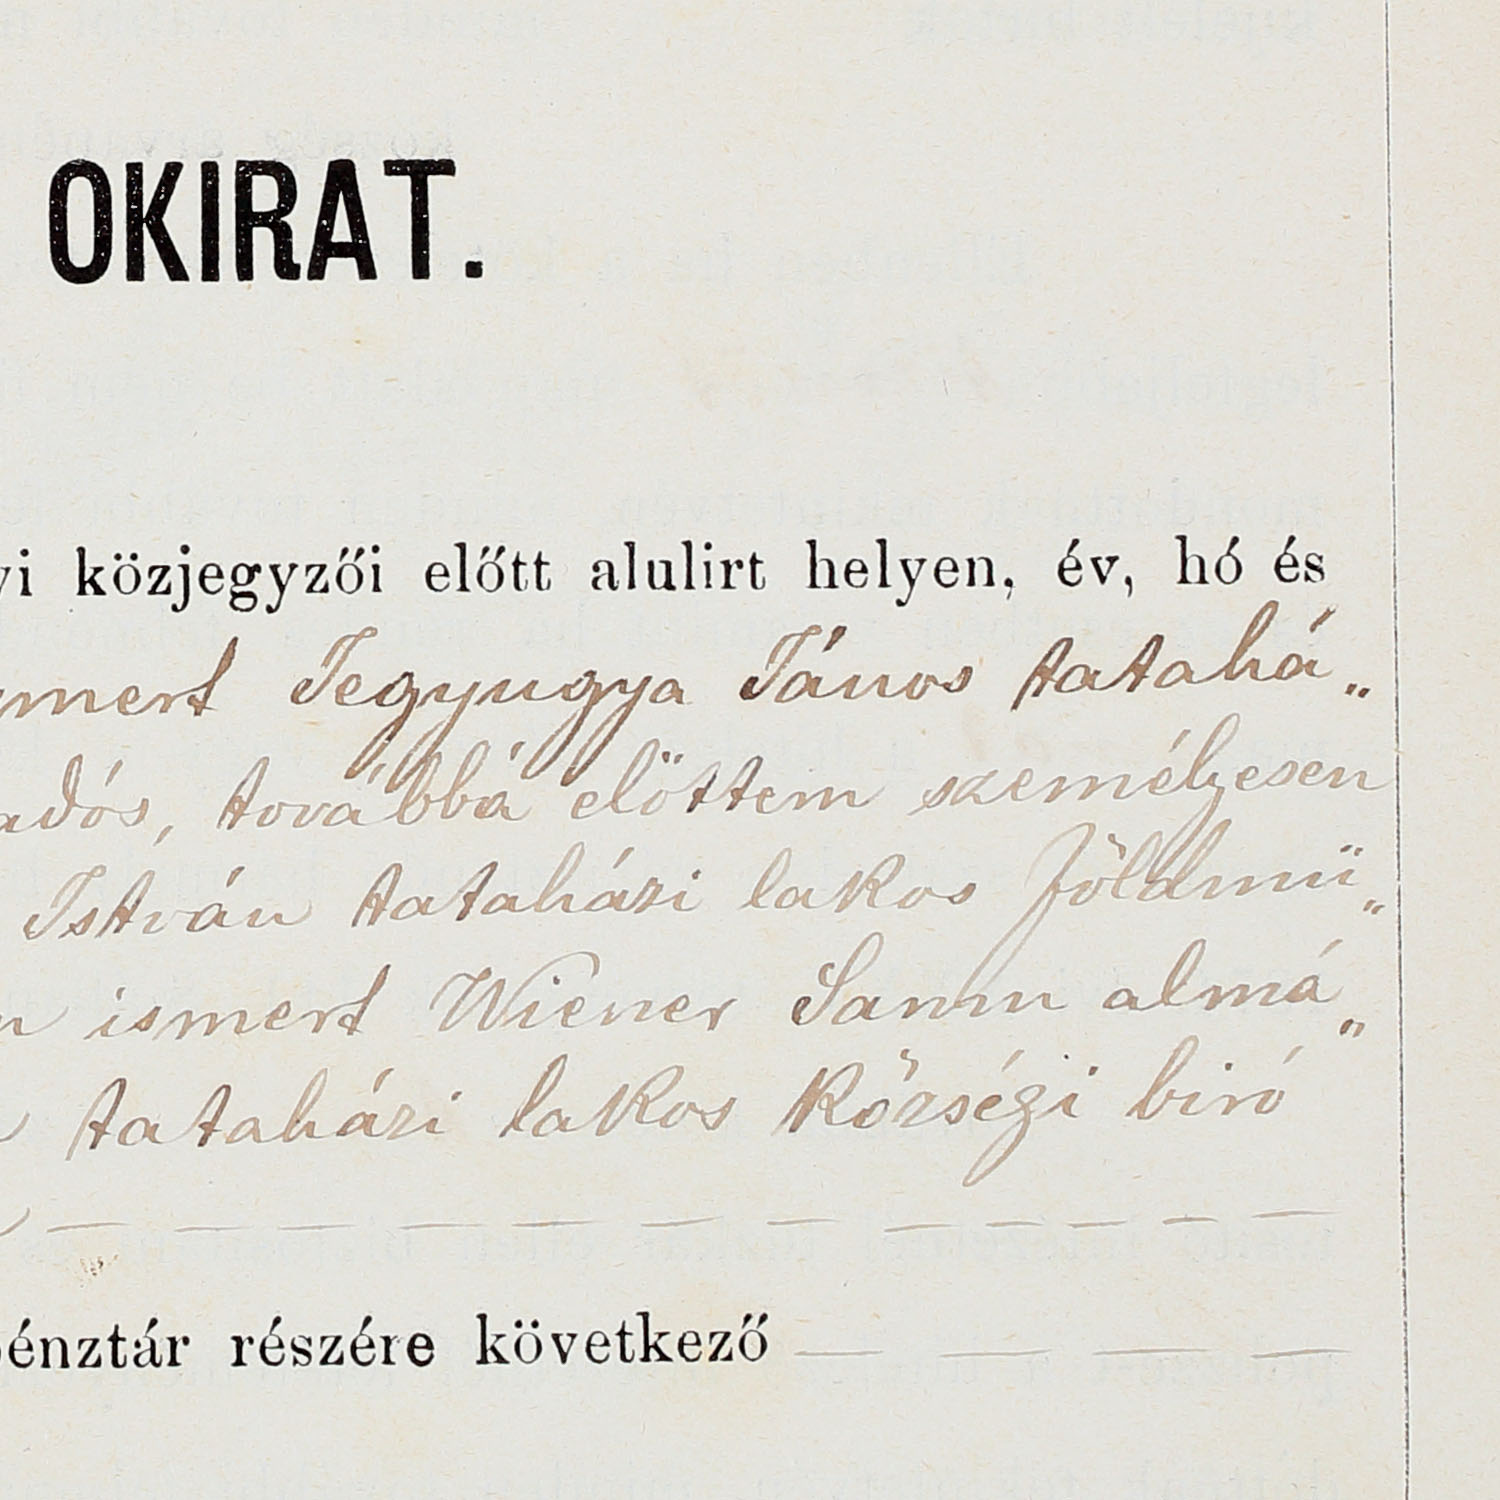 OKIRAT.
yi közjegyzői előtt alulirt helyen, év, hó és
mert Jegyugya János tatahá„
adós, továbbá előttem személyesen
István tataházi lakos földmü„
n ismert Wiener Samu almá„
tataházi lakos községi biró
pénztár részére következő